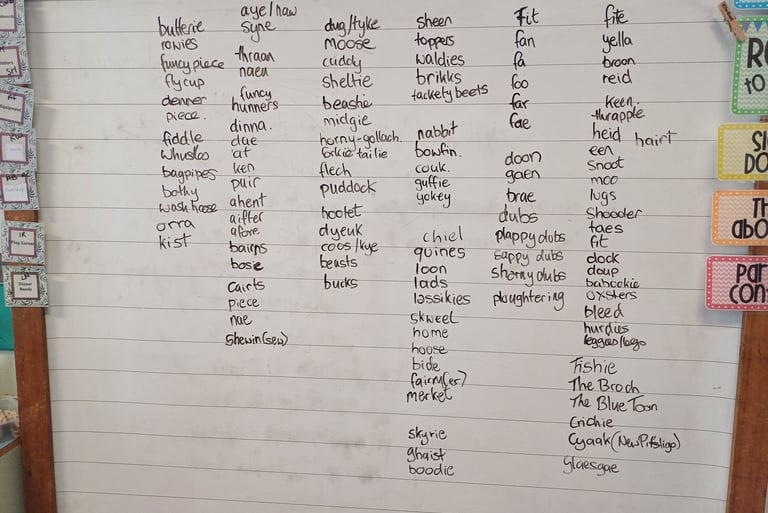 butterie
rowies
funcy piece
fly cup
denner
piece.
fiddle
whustles
bagpipes
bothy
wash hoose
orra
kist
aye/naw
syne
thraan
naen
funcy
hunners
dinna.
dae
at
ken
puir
ahent
aifter
afore
bairns
bosie
cairts
piece
nae
shewin(sew)
dug/tyke
moose
cuddy
sheltie
beastie
midgie
horny-gollach.
forkie tailie
flech
puddock
hoolet
dyeuk
coos/kye
beasts
bucks
sheen
toppers
waldies
brikks
tackety beets
nabbit
bowfin.
couk.
guffie
yokey
chiel
quines
loon
lads
lassikies
skweel
home
hoose
bide
fairm(er)
merket
skyrie
ghaist
boodie
Fit
fan
fa
foo
far
fae
doon
gaen
brae
dubs
plappy dubs
sappy dubs
sherny dubs
ploughtering
fite
yella
broon
reid
keen.
thrapple
heid hairt
een
snoot
moo
lugs
shooder
taes
fit
dock
doup
bahookie
oxsters
bleed
hurdies
Fishie
The Broch
The Blue Toon
Crichie
Cyaak (New Pitsligo)
Glaesgae